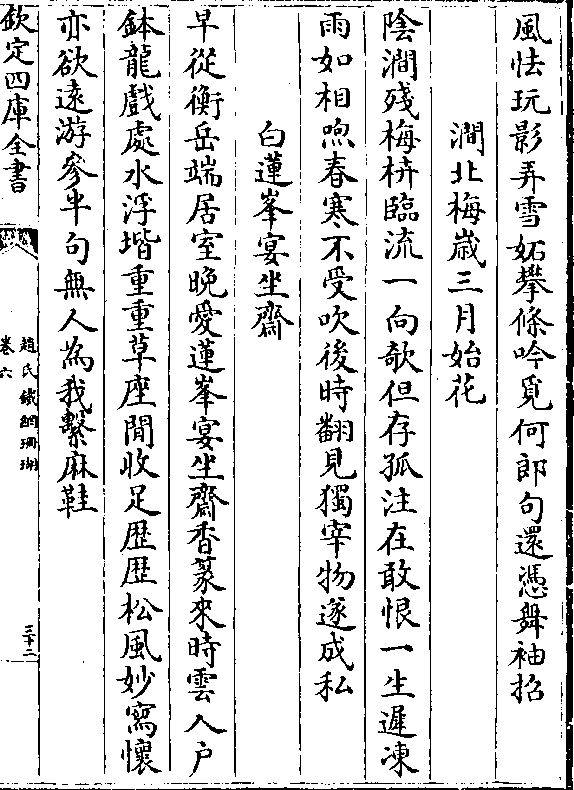 風怯玩影弄雪妬攀條吟覓何郎句還憑舞袖招
澗北梅歲三月始花
陰澗殘梅枿臨流一向欹但存孤注在敢恨一生遲凍
雨如相喣春寒不受吹後時翻見獨宰物遂成私
白蓮峯宴坐齋
早從衡岳端居室晚愛蓮峯宴坐齋香篆來時雲入户
鉢龍戲處水浮堦重重草座閒收足歷歷松風妙寫懷
亦欲逺游參半句無人為我繫麻鞋
欽定四庫全書
趙氏鐵網珊瑚
卷六
三十二